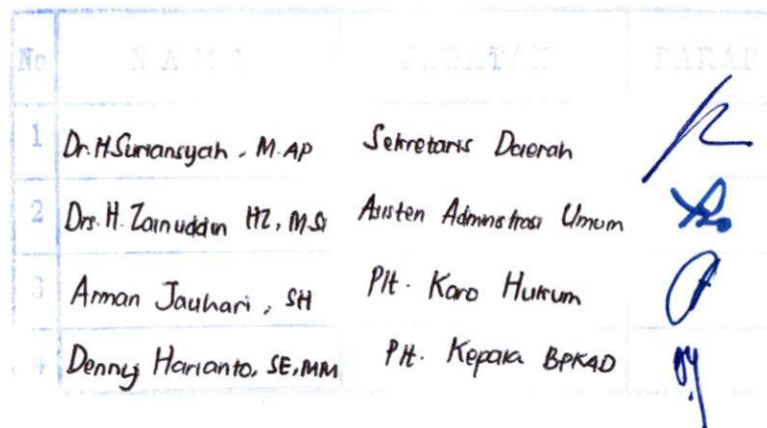 No NAMA JABATAN PARAF
1 Dr. H Suriansyah, M.AP Sekretaris Daerah
2 Drs. H. Zainuddin HZ, M.Si Asisten Administrasi Umum
3 Arman Jauhari, SH Plt. Karo Hukum
4 Denny Harianto, SE, MM Plt. Kepala BPKAD